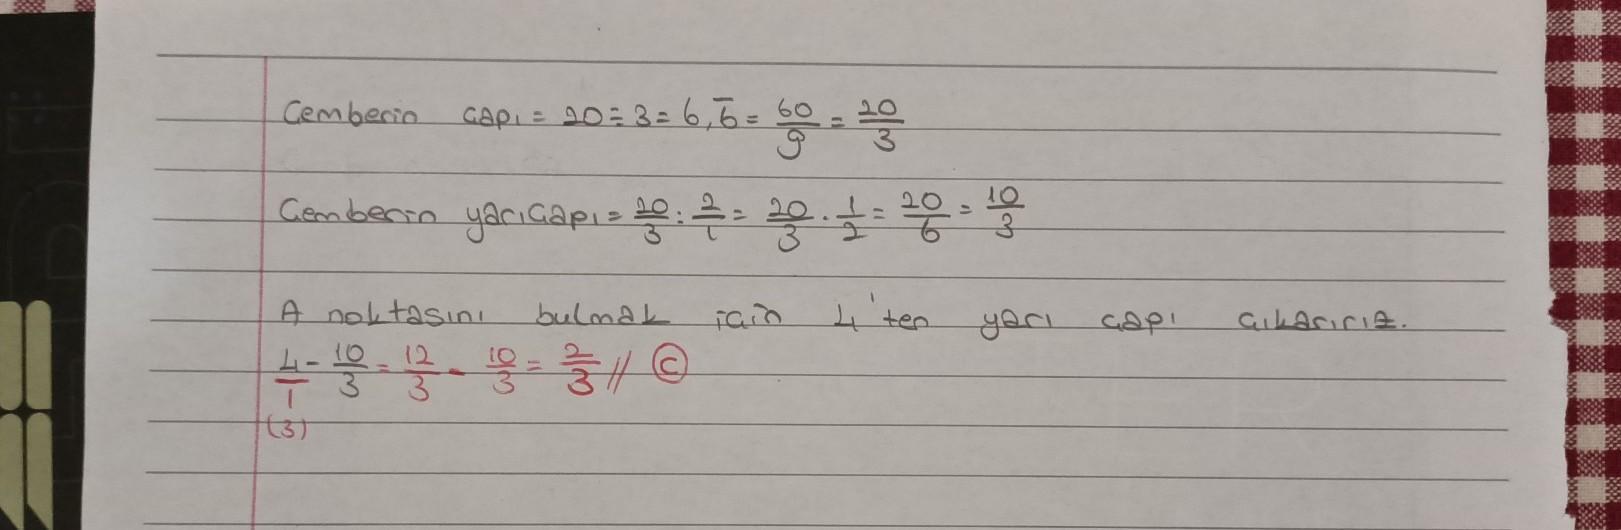 Çemberin çapı = 20 ÷ 3 = 6,6̅ = 60/9 = 20/3
Çemberin yarıçapı = 20/3 : 2/1 = 20/3 . 1/2 = 20/6 = 10/3
A noktasını bulmak için 4'ten yarı çapı çıkarırız.
4/1 - 10/3 = 12/3 - 10/3 = 2/3 // Ⓒ
(3)